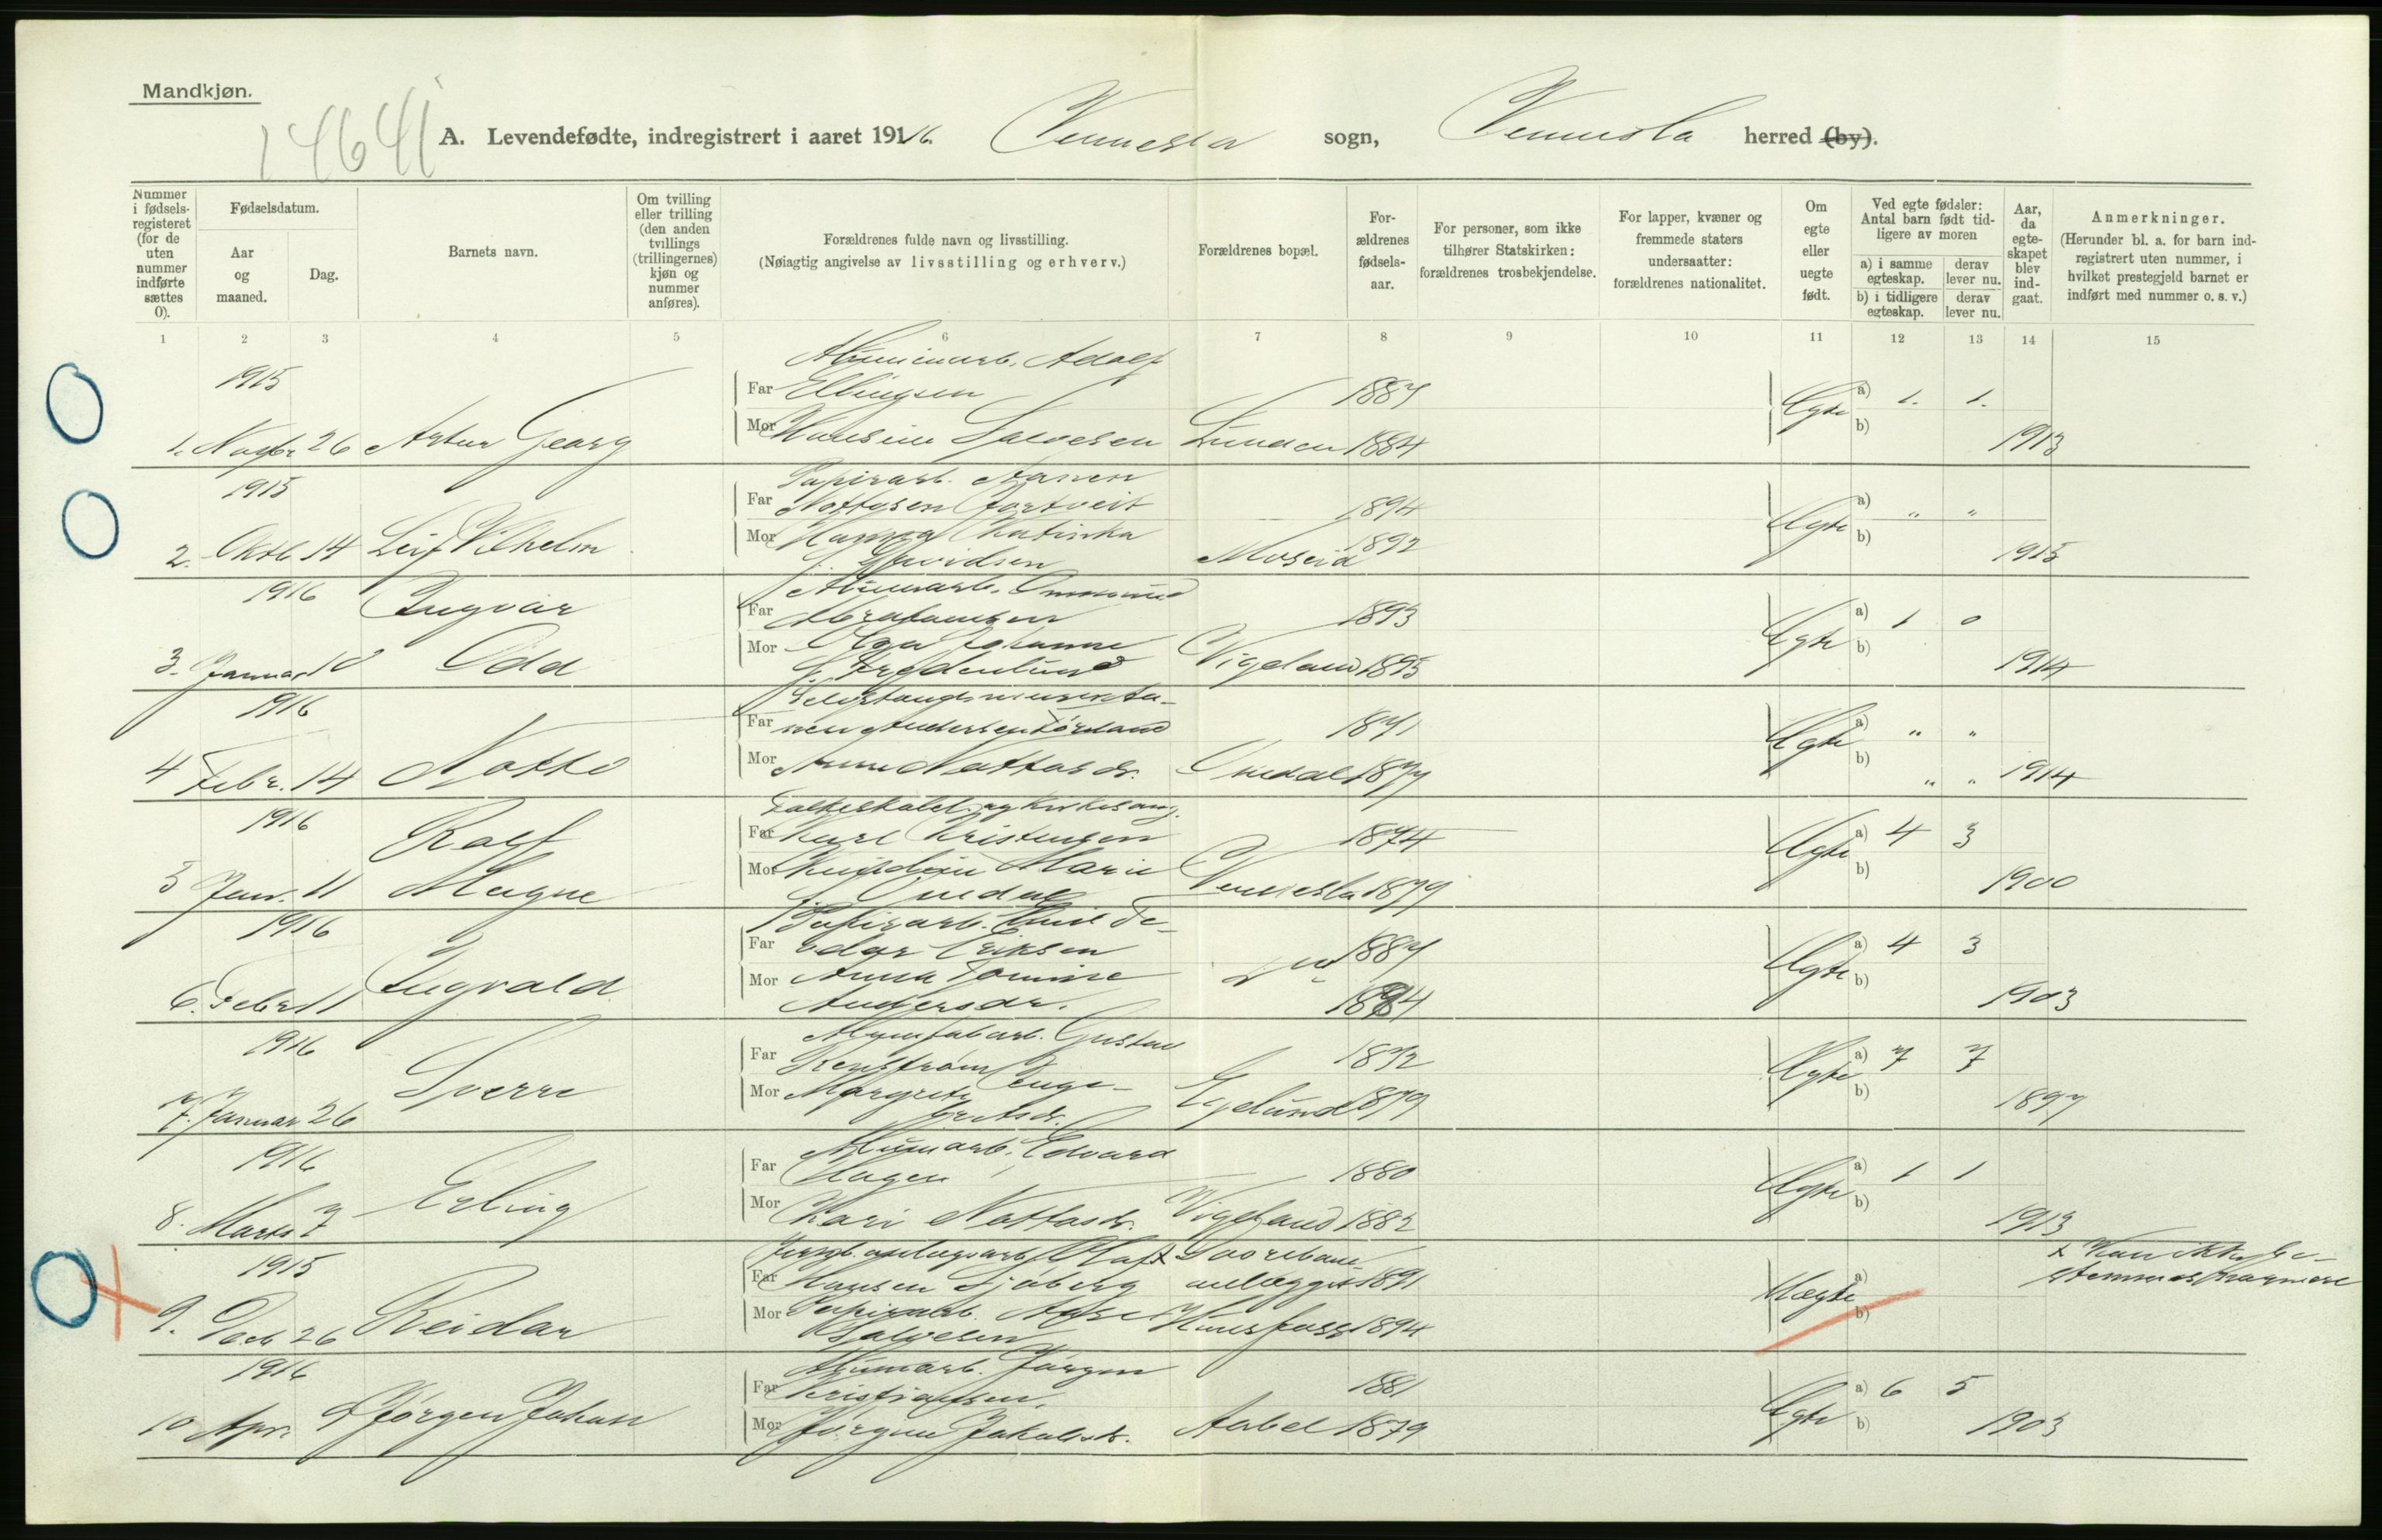 Mandkjøn.
14641
A. Levendefødte, indregistrert i aaret 1916. Vennesla sogn, Vennesla herred (by).
Nummer i fødsels-registeret (for de uten nummer indførte sættes 0).
Fødselsdatum.
Aar og maaned.
Dag.
Barnets navn.
Om tvilling eller trilling (den anden tvillings (trillingernes) kjøn og nummer anføres).
Forældrenes fulde navn og livsstilling.
(Nøiagtig angivelse av livsstilling og erhverv.)
Forældrenes bopæl.
For-ældrenes fødsels-aar.
For personer, som ikke tilhører Statskirken: forældrenes trosbekjendelse.
For lapper, kvæner og fremmede staters undersaatter: forældrenes nationalitet.
Om egte eller uegte født.
Ved egte fødsler: Antal barn født tid-ligere av moren
a) i samme egteskap. derav lever nu.
b) i tidligere egteskap. derav lever nu.
Aar, da egte-skapet blev ind-gaat.
Anmerkninger.
(Herunder bl. a. for barn ind-registrert uten nummer, i hvilket prestegjeld barnet er indført med nummer o. s. v.)
1 2 3 4 5 6 7 8 9 10 11 12 13 14 15
1915 Aluminarb. Adolf
Far Ellingsen 1887 Egte a) 1. 1.
1. Novbr. 26 Artur Georg Mor Hansine Salvesen Lunden 1884 b) 1913
1915 Papirarb. Aanen
Far Nottosen Jortveit 1894 Egte a) " "
2. Oktb. 14 Leif Vilhelm Mor Hanna Katinka 1892 b)
Moseid 1915
1916 Ingvar Alumarb. Ommund
Far Abrahamsen 1893 Egte a) 1 0
3. Januar 10 Odd Mor Olga Johanne Vigeland 1895 b) 1914
1916
Far Andersen 1871 Egte a) " "
4 Febr. 14 Notto Mor Anne Nottosdr. Omdal 1877 b) " " 1914
1916 Rolf Folkeskolel. og kirkesang.
Far Karl Kristensen 1874 Egte a) 4 3
5 Jan. 11 Magne Mor Marie Vennesla 1879 b) 1900
Omdal
1916 Papirarb. Emil Te-
Far odor Eriksen 1887 Egte a) 4 3
6. Febr. 11 Ingvald Mor Anna Tomine 1884 b) 1903
Andersdr.
1916 Alumfabarb. Gustav
Far 1872 Egte a) 7 7
7. Januar 26 Sverre Mor Margrete Inge- Egelund 1879 b) 1897
bretsdr.
1916 Alumarb. Edvard
Far Hagen 1880 Egte a) 1 1
8. Marts 7 Erling Mor Kari Nottosdr. Vigeland 1882 b) 1913
1915 Jernb.anlægsarb. Olaf x Sørlbane
Far Hansen Sjøberg anlægget 1891 Uegte a) x Kan ikke be-
stemmes nærmere
9. Decb. 26 Reidar Mor Papirarb. Hunsfoss 1894 b)
Salvesen
1916 Alumarb. Jørgen
Far Kristiansen. 1881 Egte a) 6 5
10 Apr. 8 Jørgen Johan Mor Jørgine Jakobsdr. Aabel 1879 b) 1903